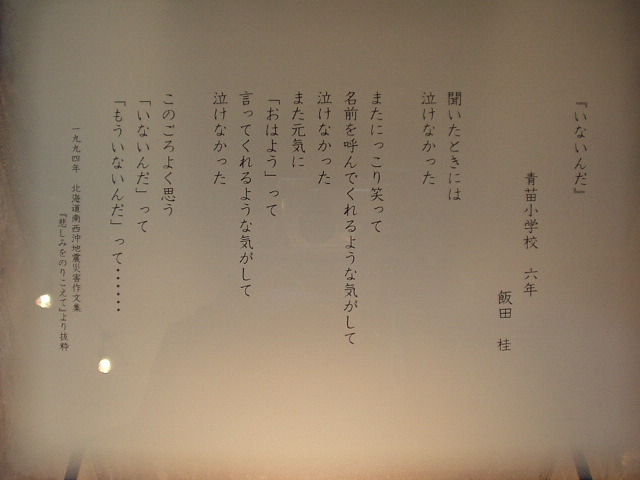 『いないんだ』
青苗小学校 六年
飯田 桂
聞いたときには
泣けなかった
またにっこり笑って
名前を呼んでくれるような気がして
泣けなかった
また元気に
「おはよう」って
言ってくれるような気がして
泣けなかった
このごろよく思う
「いないんだ」って
「もういないんだ」って・・・・・・・
一九九四年 北海道南西沖地震災害作文集
『悲しみをのりこえて』より抜粋